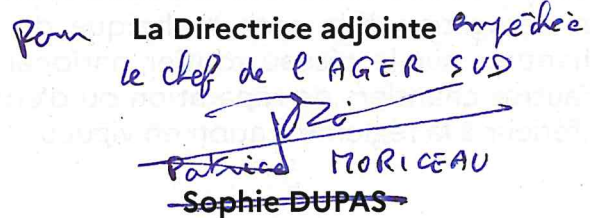 Pour La Directrice adjointe empêchée
le chef de l'AGER SUD
Patrice MORICEAU
Sophie DUPAS